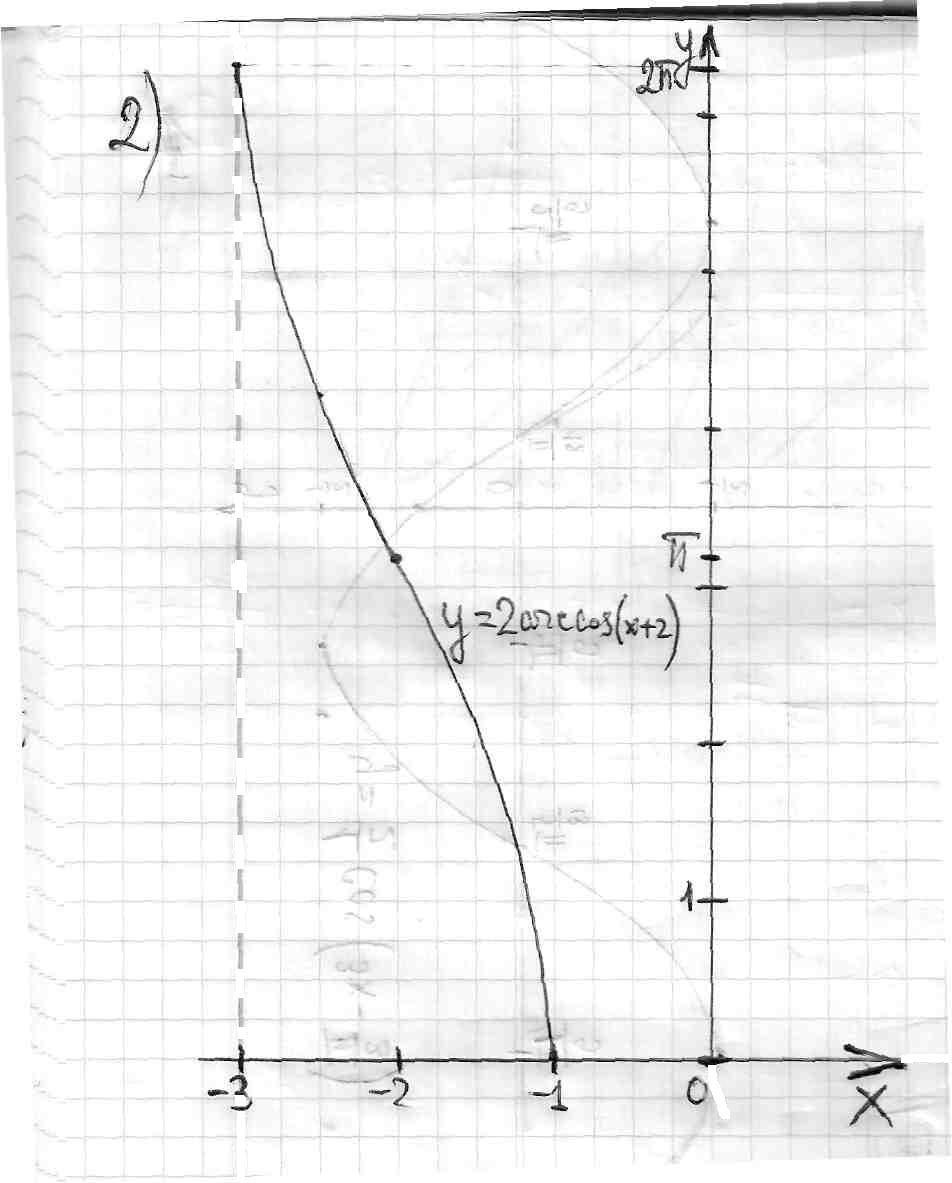 2)
y
2π
π
y=2arccos(x+2)
1
-3 -2 -1 0
x